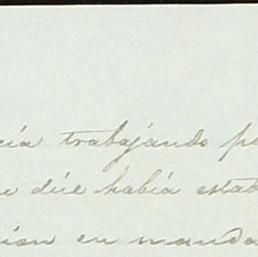 cía trabajando pe
e dúe había estad
ion en manda